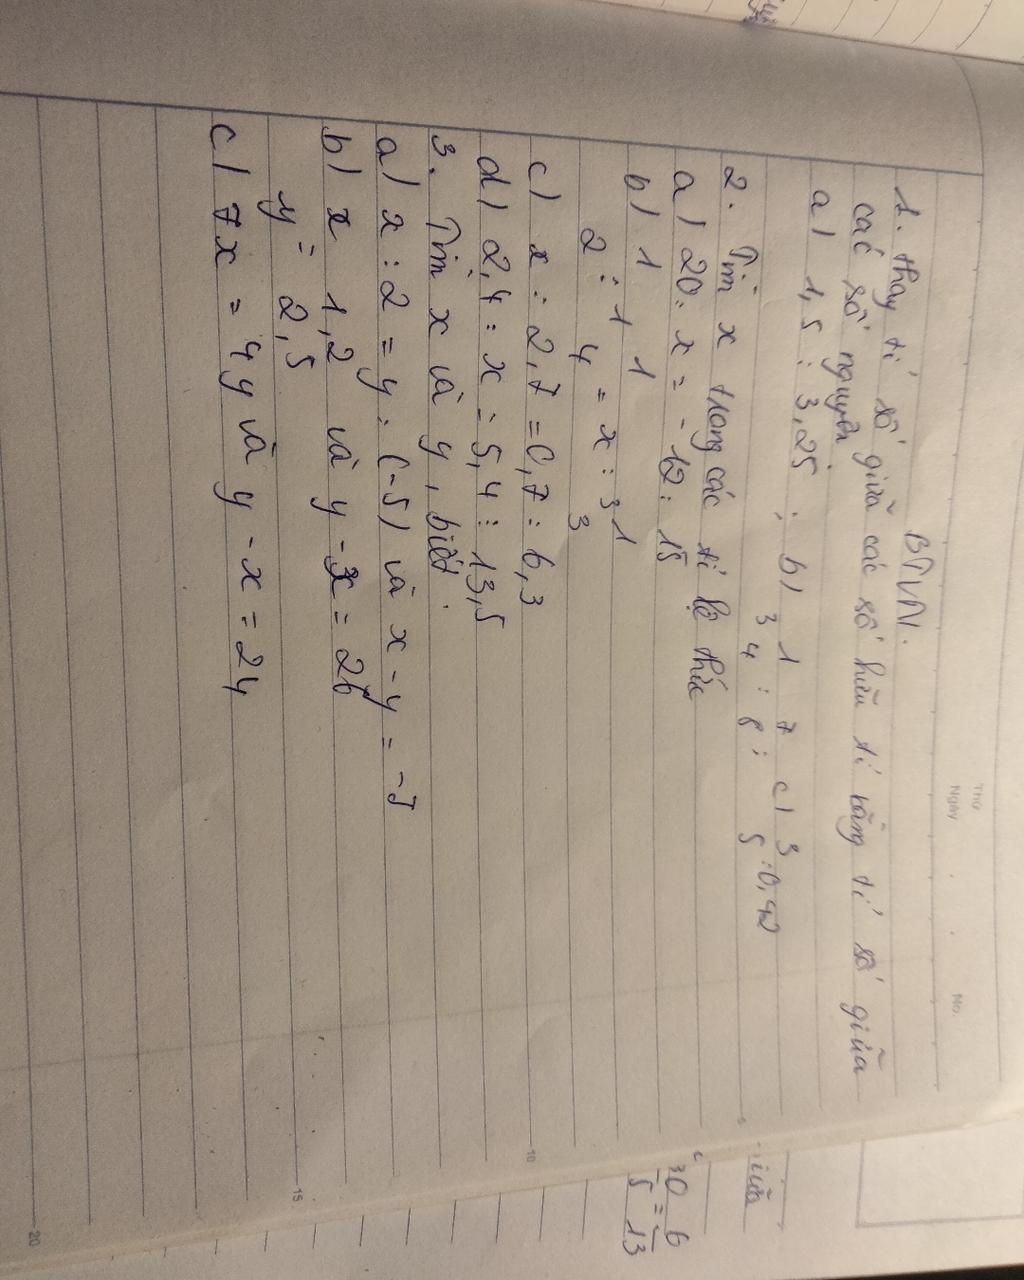 Thứ
Ngày
No.
BTVN.
1. thay tỉ số giữa các số hữu tỉ bằng tỉ số giữa
các số nguyên
a) 1,5 : 3,25 ; b) 1 7 c) 3
3 4 : 8 ; 5 : 0,42
2. Tìm x trong các tỉ lệ thức
a) 20 : x = -12 : 15
b) 1 1 1
2 : 1 4 = x : 3 1
3
c) x : 2,7 = 0,7 : 6,3
d) 2,4 : x = 5,4 : 13,5
3. Tìm x và y, biết.
a) x : 2 = y : (-5) và x - y = -7
b) x 1,2 và y - x = 26
y = 2,5
c) 7x = 4y và y - x = 24
5
10
15
20
giữa
30 6
15 = 13